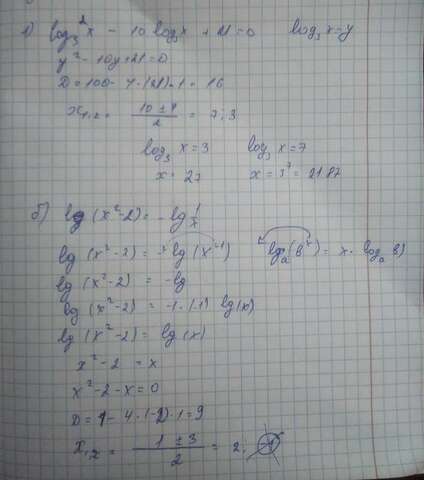 а) log₃²x - 10 log₃x + 21 = 0 log₃x = y
y² - 10y + 21 = 0
D = 100 - 4·(21)·1 = 16
x₁,₂ = (10 ± 4)/2 = 7; 3
log₃ x = 3 log₃ x = 7
x = 27 x = 3⁷ = 2187
б) lg (x² - 2) = - lg 1/x
lg (x² - 2) = - lg (x⁻¹) logₐ(bˣ) = x · logₐ b)
lg (x² - 2) = - lg
lg (x² - 2) = -1 · (-1) lg (x)
lg (x² - 2) = lg (x)
x² - 2 = x
x² - 2 - x = 0
D = 1 - 4·(-2)·1 = 9
x₁,₂ = (1 ± 3)/2 = 2;